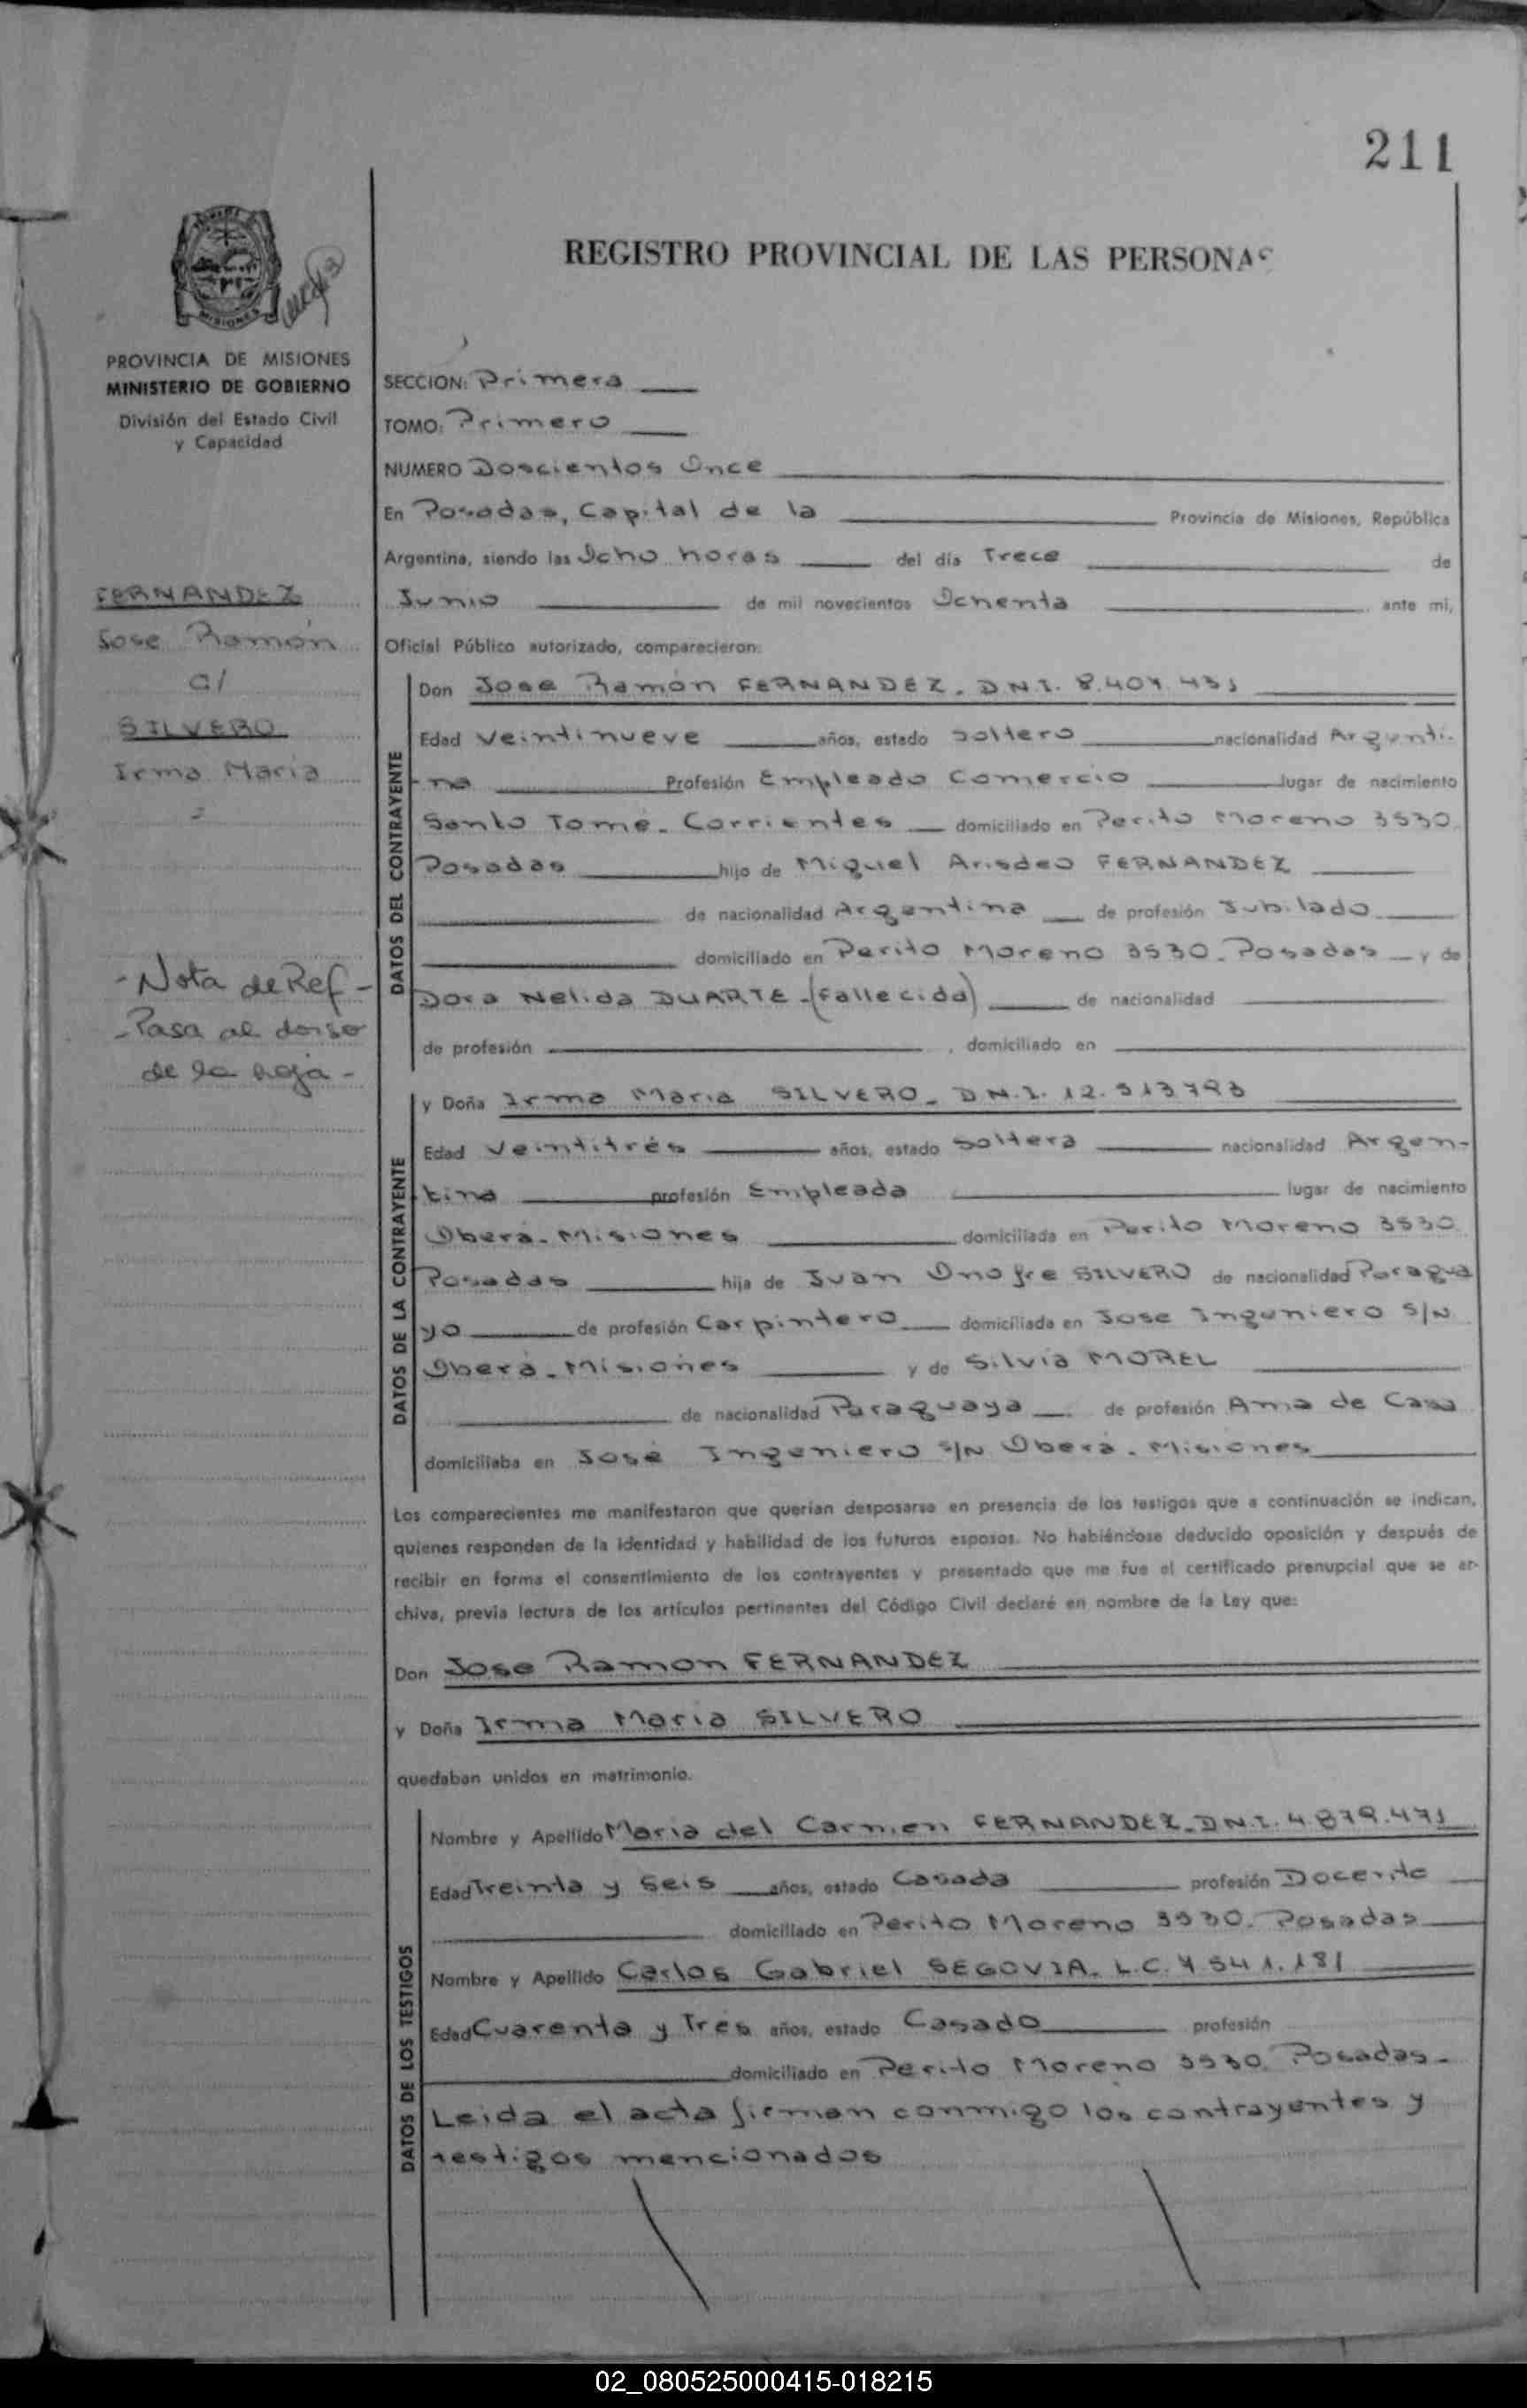 211
REGISTRO PROVINCIAL DE LAS PERSONAS
MISIONES
PROVINCIA DE MISIONES
MINISTERIO DE GOBIERNO
División del Estado Civil
y Capacidad
FERNANDEZ
Jose Ramón
c/
SILVERO
Irma Maria
- Nota de Ref -
- Pasa al dorso
de la hoja -
SECCION: Primera
TOMO: Primero
NUMERO Doscientos Once
En Posadas, Capital de la Provincia de Misiones, República
Argentina, siendo las Ocho horas del día Trece de
Junio de mil novecientos Ochenta ante mi,
Oficial Público autorizado, comparecieron:
DATOS DEL CONTRAYENTE
Don Jose Ramón FERNANDEZ. D.N.I.
Edad Veintinueve años, estado Soltero nacionalidad Argenti-
na Profesión Empleado Comercio lugar de nacimiento
Santo Tomé. Corrientes domiciliado en Perito Moreno 3530
Posadas hijo de Miguel Arisdeo FERNANDEZ
de nacionalidad Argentina de profesión Jubilado
domiciliado en Perito Moreno 3530. Posadas y de
Dora Nelida DUARTE - (fallecida) de nacionalidad
de profesión , domiciliado en
DATOS DE LA CONTRAYENTE
y Doña Irma Maria SILVERO - D.N.I.
Edad Veintitrés años, estado Soltera nacionalidad Argen-
tina profesión Empleada lugar de nacimiento
Oberá - Misiones domiciliada en Perito Moreno 3530
Posadas hija de Juan Onofre SILVERO de nacionalidad Paragua
yo de profesión Carpintero domiciliada en Jose Ingeniero S/N
Oberá - Misiones y de Silvia MOREL
de nacionalidad Paraguaya de profesión Ama de Casa
domiciliaba en José Ingeniero S/N Oberá - Misiones
Los comparecientes me manifestaron que querían desposarse en presencia de los testigos que a continuación se indican,
quienes responden de la identidad y habilidad de los futuros esposos. No habiéndose deducido oposición y después de
recibir en forma el consentimiento de los contrayentes y presentado que me fue el certificado prenupcial que se ar-
chiva, previa lectura de los artículos pertinentes del Código Civil declaré en nombre de la Ley que:
Don Jose Ramon FERNANDEZ
y Doña Irma Maria SILVERO
quedaban unidos en matrimonio.
DATOS DE LOS TESTIGOS
Nombre y Apellido Maria del Carmen FERNANDEZ - D.N.I. 4.879.471
Edad Treinta y Seis años, estado Casada profesión Docente
domiciliado en Perito Moreno 3530. Posadas
Nombre y Apellido Carlos Gabriel SEGOVIA. L.C.
Edad Cuarenta y Tres años, estado Casado profesión
domiciliado en Perito Moreno 3530. Posadas -
Leida el acta firman conmigo los contrayentes y
testigos mencionados
02_080525000415-018215